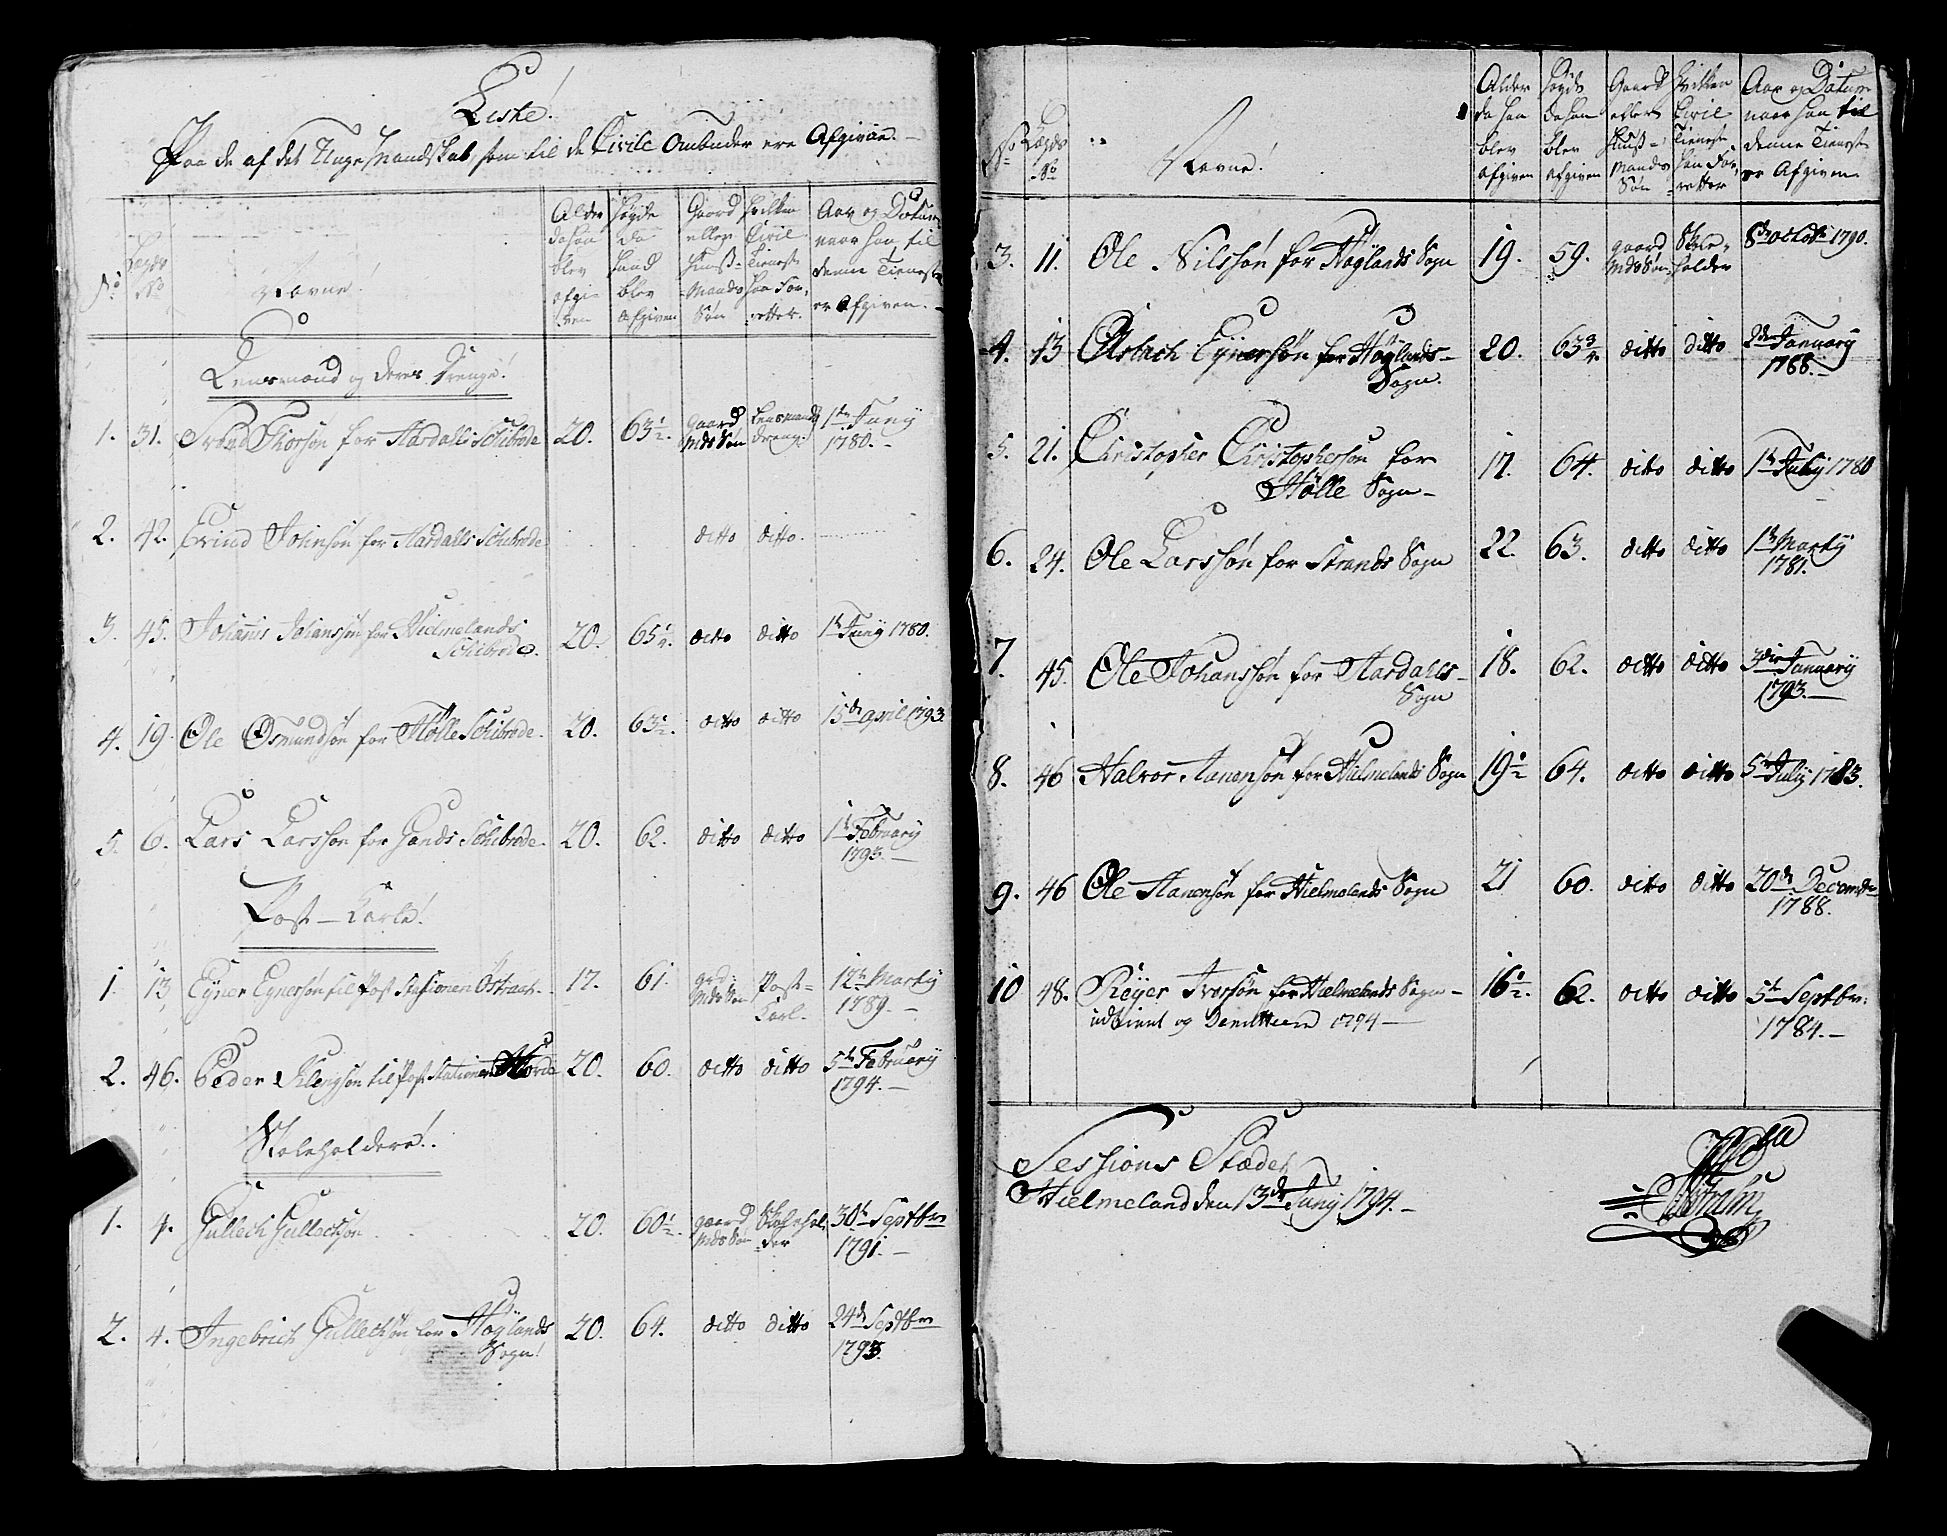 Liste!
Paa de af det Unge Mandskab som til de Civile Ombuder ere Afgivne.
No Lægds No Navne! Alder da han blev afgiven Høyde da hand blev afgiven Gaard eller Huuß-Mands Søn Hvilken Civil Tieneste han Forretter. Aar og Datum naar han til denne Tieneste er Afgiven.
Lensmænd og deres Drenge!
1. 31. Thorsøn for Aardalls Schibrede 20. 63½. Gaard Mds Søn Lensmands dreng 1te Juny 1780.
2. 42. Evind Johnsøn for Aardalls Schibrede ditto ditto.
3. 45. Johanis Johansøn for Hielmelands
Schibrede. 20. 65¼. ditto ditto 1te Juny 1780.
4. 19. Ole Osmundsøn for Holle Schibrede. 20. 63½. ditto ditto 15de april 1793.
5. 6. Lars Larssøn for Gands Schibrede. 20. 62. ditto ditto 1te February
1793.
Post-Karle!
1 13 Eyner Eynersøn til Post Stationen Østraat. 17. 61. grd: Mds Søn Post-Karl. 12te Marty
1789.
2. 46. Peder Klengsøn til Post Stationen 20. 60. ditto ditto 5te February
1794.
Skoleholdere!
1. 4. Gullech Gullechsøn 20. 60½. gaard Mds Søn Skoleholder 30te Septbr
1791.
2. 4. Ingebrict Gullechsøn for Høylands
Sogn! 20. 64. ditto ditto 24de Septbr
1793.
No Lægds No Navne! Alder da han blev afgiven Høyde da han blev afgiven Gaard eller Huuß-Mands Søn Hvilken Civil Tieneste han Forretter Aar og Datum naar han til denne Tieneste er Afgiven
3. 11. Ole Nilssøn for Høylands Sogn 19. 59. gaard Mds Søn Skoleholder 8de octobr 1790.
4. 13 Eynersøn for Høylands-
Sogn. 20. 63¾ ditto ditto 2den January
1788.
5. 21. Christopher Christophersøn for
Holle Sogn 17. 64. ditto ditto 1te July 1780
6. 24. Ole Larssøn for Strands Sogn 22. 63. ditto ditto 1te Marty
1781.
7. 45. Ole Johanssøn for Aardalls-
Sogn 18. 62. ditto ditto 3die January
1793.
8. 46 Halvor Aanensøn for Hielmelands Sogn 19½ 64. ditto ditto 5te July 1783.
9. 46 Ole Aanensøn for Hielmelands Sogn 21 60. ditto ditto 20de Decembr
1788.
10 48. Reyer Iversøn for Hielmelands Sogn-
udtient og Demitteres 1794 16½. 62. ditto ditto 5te Septbr:
1784.
Sessions Stædet
Hielmeland den 13de Juny 1794.